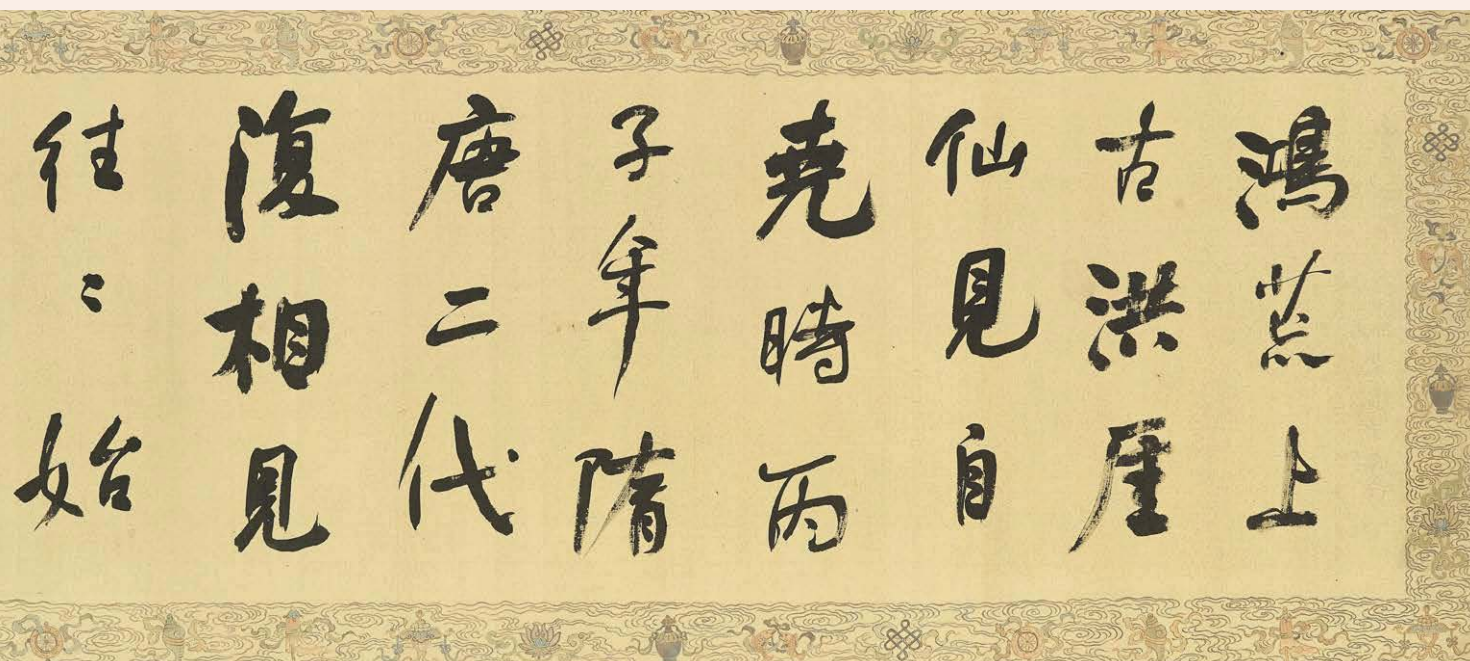 鴻荒上
古洪厓
仙見自
堯時丙
子年隋
唐二代
復相見
往〻始